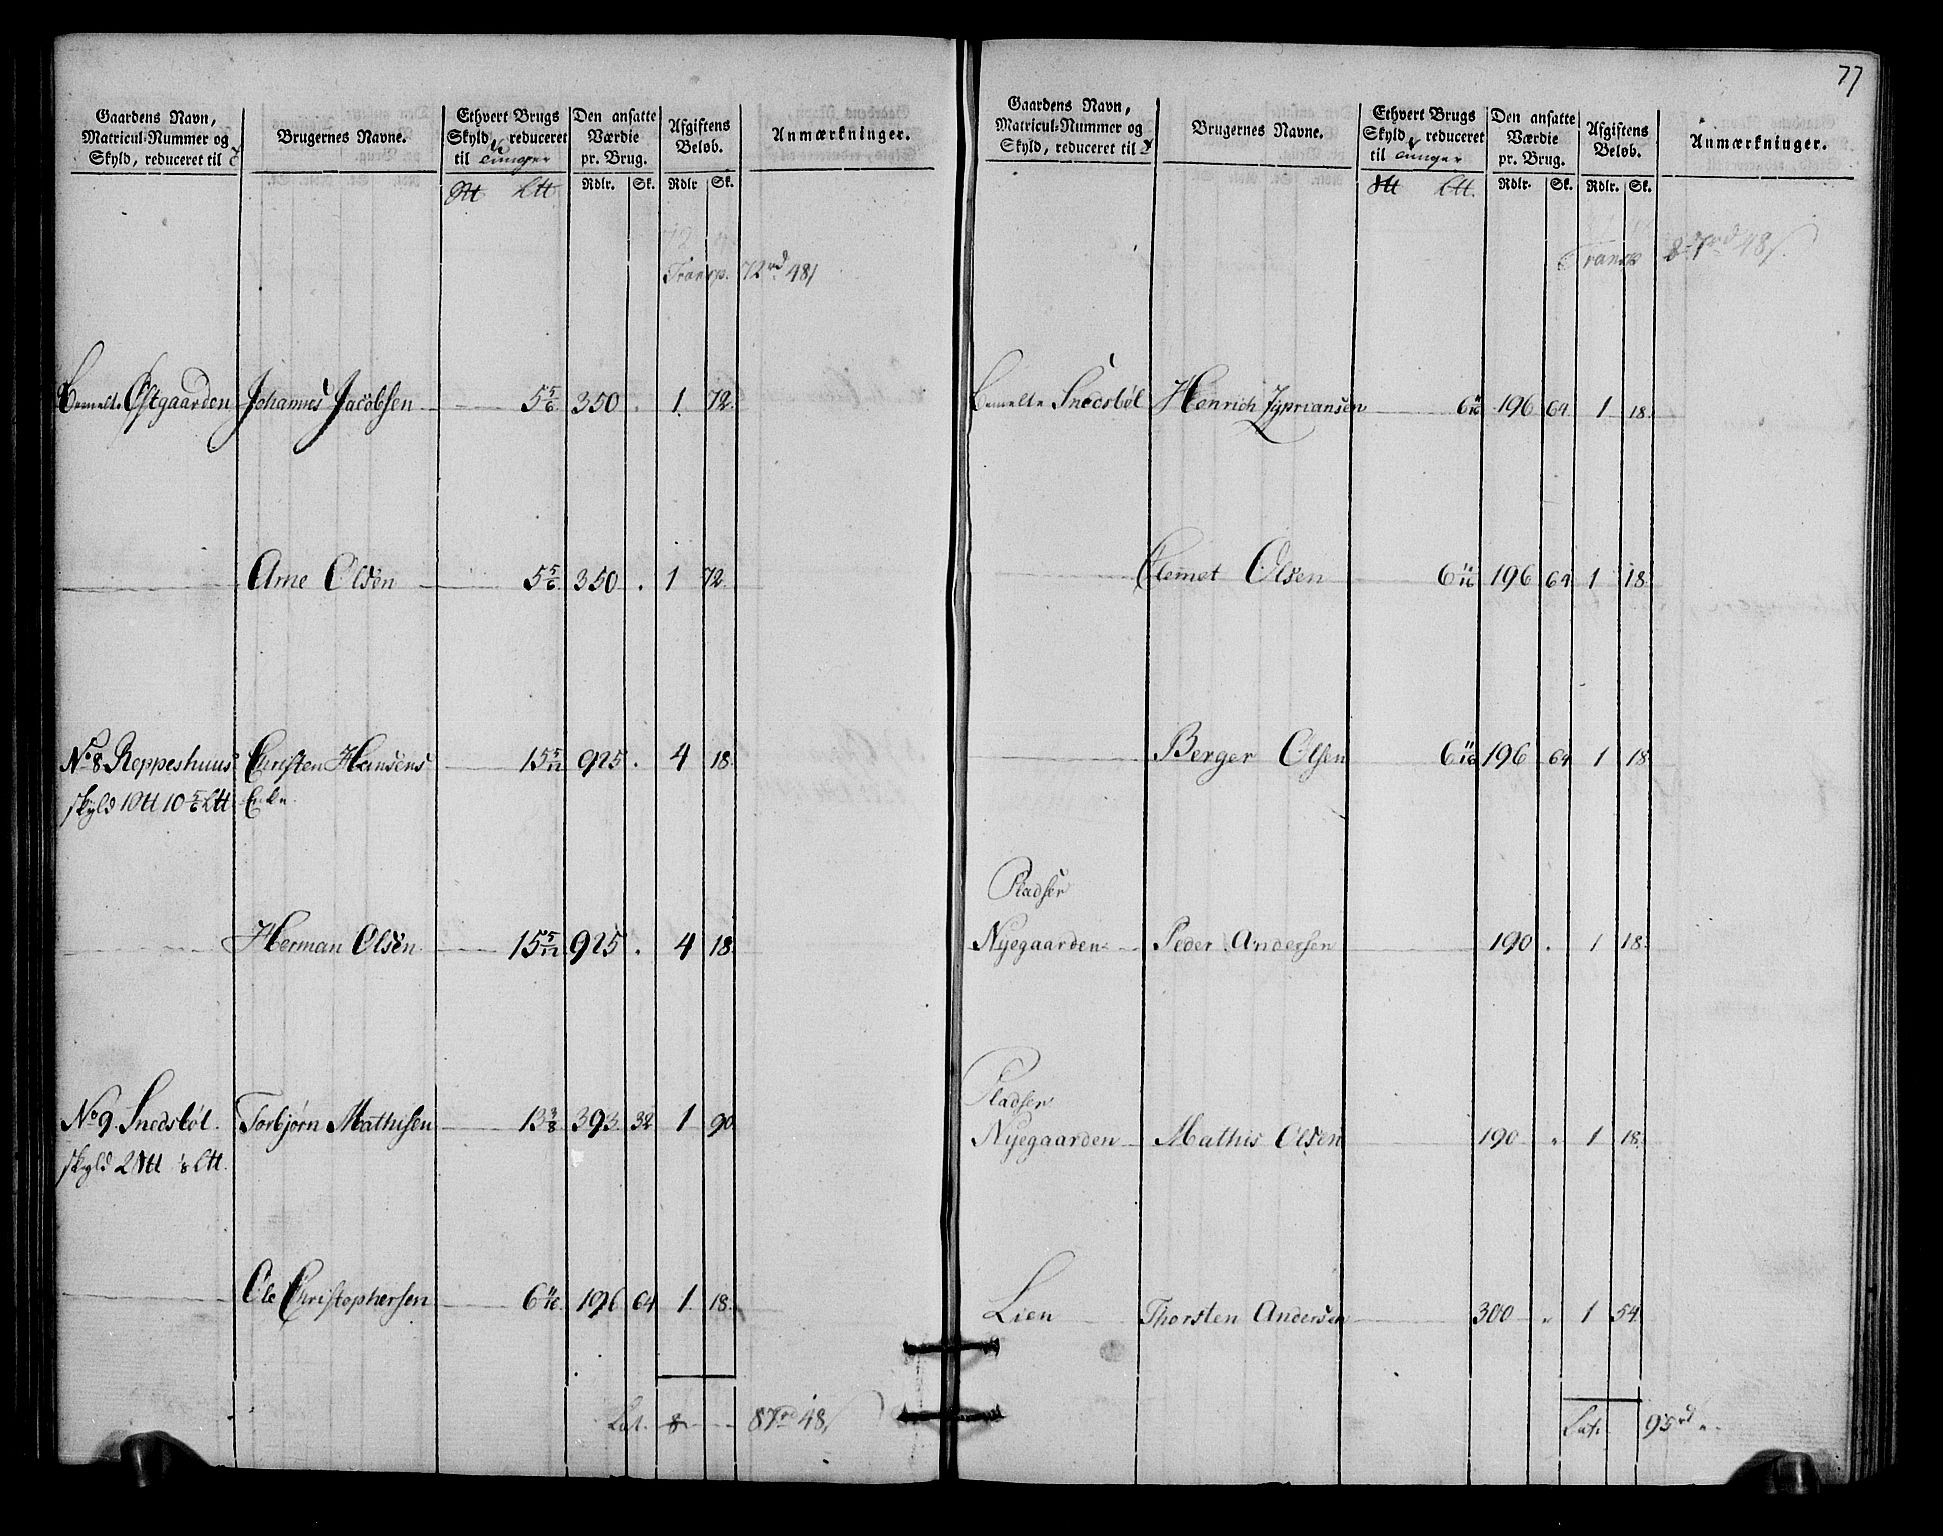 77
Gaardens Navn, Matricul-Nummer og Skyld, reduceret til
Brugernes Navne.
Ethvert Brugs Skyld, reduceret til Tunger
Den ansatte Værdie pr. Brug.
Afgiftens Beløb.
Anmærkninger.
Ltt Rdlr. Sk. Rdlr Sk.
Transp. 72rd 48ſ
Bemelte Østgaarden Johannes Jacobsen 5 5/6 350 . 1. 72.
Arne Olsen 5 5/6 350 . 1 72.
No 8 Reppeshuus Christen Hansens 15 5/12 925 . 4 18.
skyld 1 Ott 10 5/6 Ltt Enke
Herman Olsen 15 5/12 925 . 4 18.
No 9. Snedsbøl. Torbjørn Mathisen 13 3/8 393 32 1 90
skyld 2 Ott 1/8 Ltt.
Ole Christophersen 6 11/16 196 64 1 18.
Lat. 87rd 48ſ
Gaardens Navn, Matricul-Nummer og Skyld, reduceret til
Brugernes Navne.
Ethvert Brugs Skyld, reduceret til Tunger
Den ansatte Værdie pr. Brug.
Afgiftens Beløb.
Anmærkninger.
Ltt. Rdlr. Sk. Rdlr. Sk.
Transp 87rd 48ſ.
Bemelte Snedsbøl Henrich Zypriansen 6 11/16 196 64 1 18.
Clemet Olsen 6 11/16 196 64 1 18
Berger Olsen 6 11/16 196 64 1 18
Pladser
Nyegaarden Peder Andersen 190 . 1 18.
Pladsen
Nyegaarden Mathis Olsen 190 " 1 18.
Lien Thorsten Andersen 300 " 1 54.
Lat. 95rd "